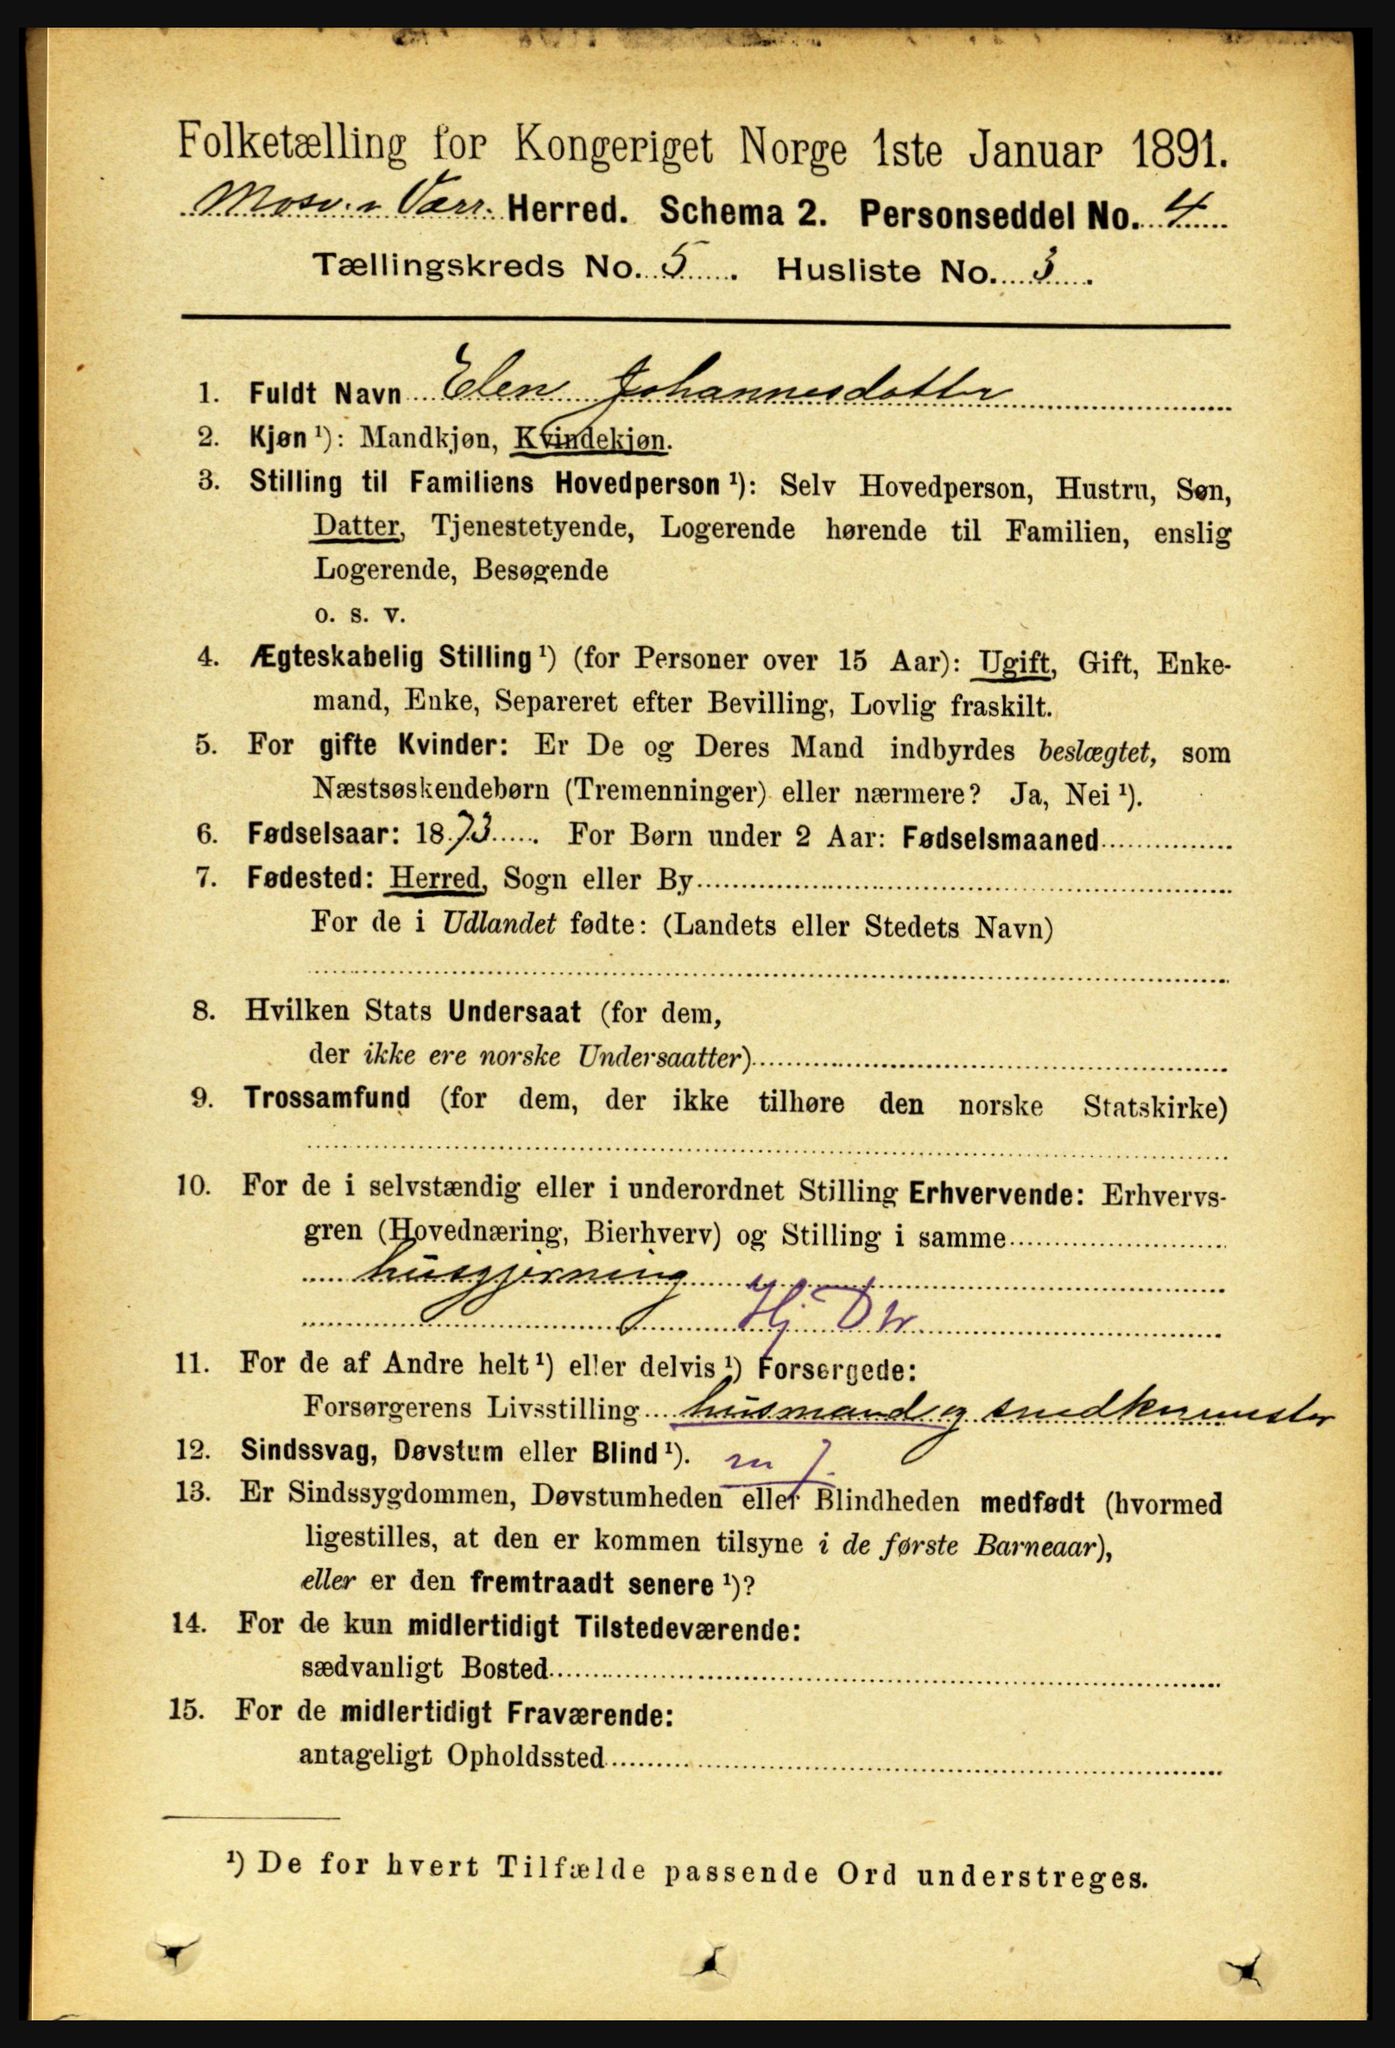 Folketælling for Kongeriget Norge 1ste Januar 1891.
Mosv. & Værr. Herred. Schema 2. Personseddel No. 4
Tællingskreds No. 5. Husliste No. 3.
1. Fuldt Navn Elen Johannesdatter
2. Kjøn¹): Mandkjøn, Kvindekjøn.
3. Stilling til Familiens Hovedperson¹): Selv Hovedperson, Hustru, Søn,
Datter, Tjenestetyende, Logerende hørende til Familien, enslig
Logerende, Besøgende
o. s. v.
4. Ægteskabelig Stilling¹) (for Personer over 15 Aar): Ugift, Gift, Enke-
mand, Enke, Separeret efter Bevilling, Lovlig fraskilt.
5. For gifte Kvinder: Er De og Deres Mand indbyrdes beslægtet, som
Næstsøskendebørn (Tremenninger) eller nærmere? Ja, Nei¹).
6. Fødselsaar: 1873. For Børn under 2 Aar: Fødselsmaaned
7. Fødested: Herred, Sogn eller By
For de i Udlandet fødte: (Landets eller Stedets Navn)
8. Hvilken Stats Undersaat (for dem,
der ikke ere norske Undersaatter)
9. Trossamfund (for dem, der ikke tilhøre den norske Statskirke)
10. For de i selvstændig eller i underordnet Stilling Erhvervende: Erhvervs-
gren (Hovednæring, Bierhverv) og Stilling i samme
husgjerning
Hj Dtr
11. For de af Andre helt¹) eller delvis¹) Forsørgede:
Forsørgerens Livsstilling husmand og snedkermester
12. Sindssvag, Døvstum eller Blind¹).
13. Er Sindssygdommen, Døvstumheden eller Blindheden medfødt (hvormed
ligestilles, at den er kommen tilsyne i de første Barneaar),
eller er den fremtraadt senere¹)?
14. For de kun midlertidigt Tilstedeværende:
sædvanligt Bosted
15. For de midlertidigt Fraværende:
antageligt Opholdssted
¹) De for hvert Tilfælde passende Ord understreges.